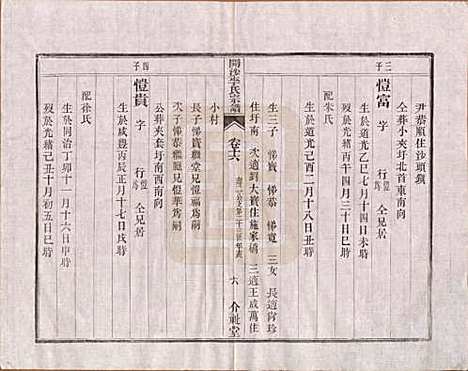 尹恭順住沙頭鎮
公葬小夾圩北首東南向
三子
愷富 字 行 仝兄居
生於道光乙巳七月十四日未時
歿於光緒丙午四月三十日寅時
配朱氏
生於道光己酉二月十八日丑時
生三子 悌寶 悌恭 悌寬 三女 長適
住圩南 次適劉大寶住施家橋 三適王成萬住
開沙李氏宗譜
卷六
六
介祉堂
小村
長子悌寶繼堂兄愷福為嗣
次子悌恭繼胞兄愷華為嗣
公葬夾套圩南西南向
四子
愷貴 字 行 仝兄居
生於咸豐丙辰正月十七日戌時
配徐氏
生於同治丁卯十一月十六日申時
歿於光緒己丑十月初五日巳時